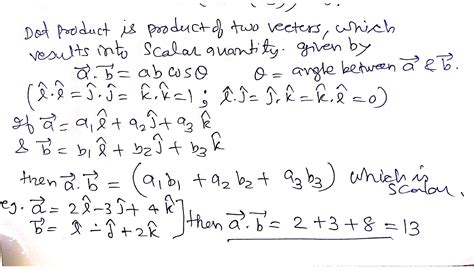 Dot product is product of two vectors, which
results into scalar quantity. given by
a⃗.b⃗ = ab cosθ θ = angle between a⃗ & b⃗.
(î.î = ĵ.ĵ = k̂.k̂ = 1 ; î.ĵ = ĵ.k̂ = k̂.î = 0)
If a⃗ = a₁î + a₂ĵ + a₃k̂
& b⃗ = b₁î + b₂ĵ + b₃k̂
then a⃗.b⃗ = (a₁b₁ + a₂b₂ + a₃b₃) which is scalar.
eg. a⃗ = 2î - 3ĵ + 4k̂
b⃗ = î - ĵ + 2k̂ ] then a⃗.b⃗ = 2 + 3 + 8 = 13